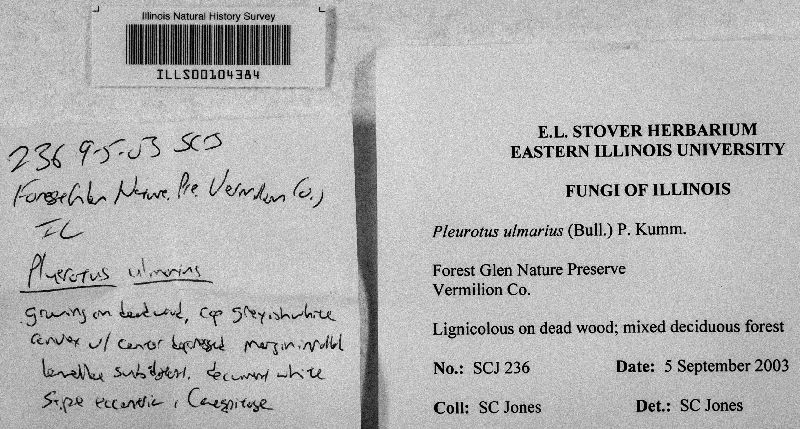 Illinois Natural History Survey
ILLS00104384
236 9-5-03 SCJ
Forest Glen Nature Pre. Vermilion Co.,
IL
Pluerotus ulmarius
growing on dead wood, cap greyish white
convex w/ center depressed margin
lamellae subdistant, decurrent white
Stipe eccentric, Caespitose
E.L. STOVER HERBARIUM
EASTERN ILLINOIS UNIVERSITY
FUNGI OF ILLINOIS
Pleurotus ulmarius (Bull.) P. Kumm.
Forest Glen Nature Preserve
Vermilion Co.
Lignicolous on dead wood; mixed deciduous forest
No.: SCJ 236 Date: 5 September 2003
Coll: SC Jones Det.: SC Jones